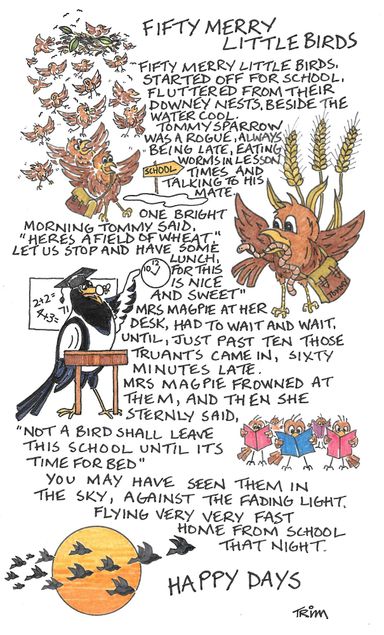 FIFTY MERRY
LITTLE BIRDS
FIFTY MERRY LITTLE BIRDS,
STARTED OFF FOR SCHOOL,
FLUTTERED FROM THEIR
DOWNEY NESTS, BESIDE THE
WATER COOL.
TOMMY SPARROW
WAS A ROGUE, ALWAYS
BEING LATE, EATING
WORMS IN LESSON
TIMES AND
TALKING TO HIS
MATE.
SCHOOL
ONE BRIGHT
MORNING TOMMY SAID,
"HERE'S A FIELD OF WHEAT"
LET US STOP AND HAVE SOME
LUNCH,
FOR THIS
IS NICE
AND SWEET"
TOMMY
2+2=
4+3=
MRS MAGPIE AT HER
DESK, HAD TO WAIT AND WAIT,
UNTIL, JUST PAST TEN THOSE
TRUANTS CAME IN, SIXTY
MINUTES LATE.
MRS MAGPIE FROWNED AT
THEM, AND THEN SHE
STERNLY SAID,
"NOT A BIRD SHALL LEAVE
THIS SCHOOL UNTIL ITS
TIME FOR BED"
YOU MAY HAVE SEEN THEM IN
THE SKY, AGAINST THE FADING LIGHT.
FLYING VERY VERY FAST
HOME FROM SCHOOL
THAT NIGHT.
HAPPY DAYS
TRIM